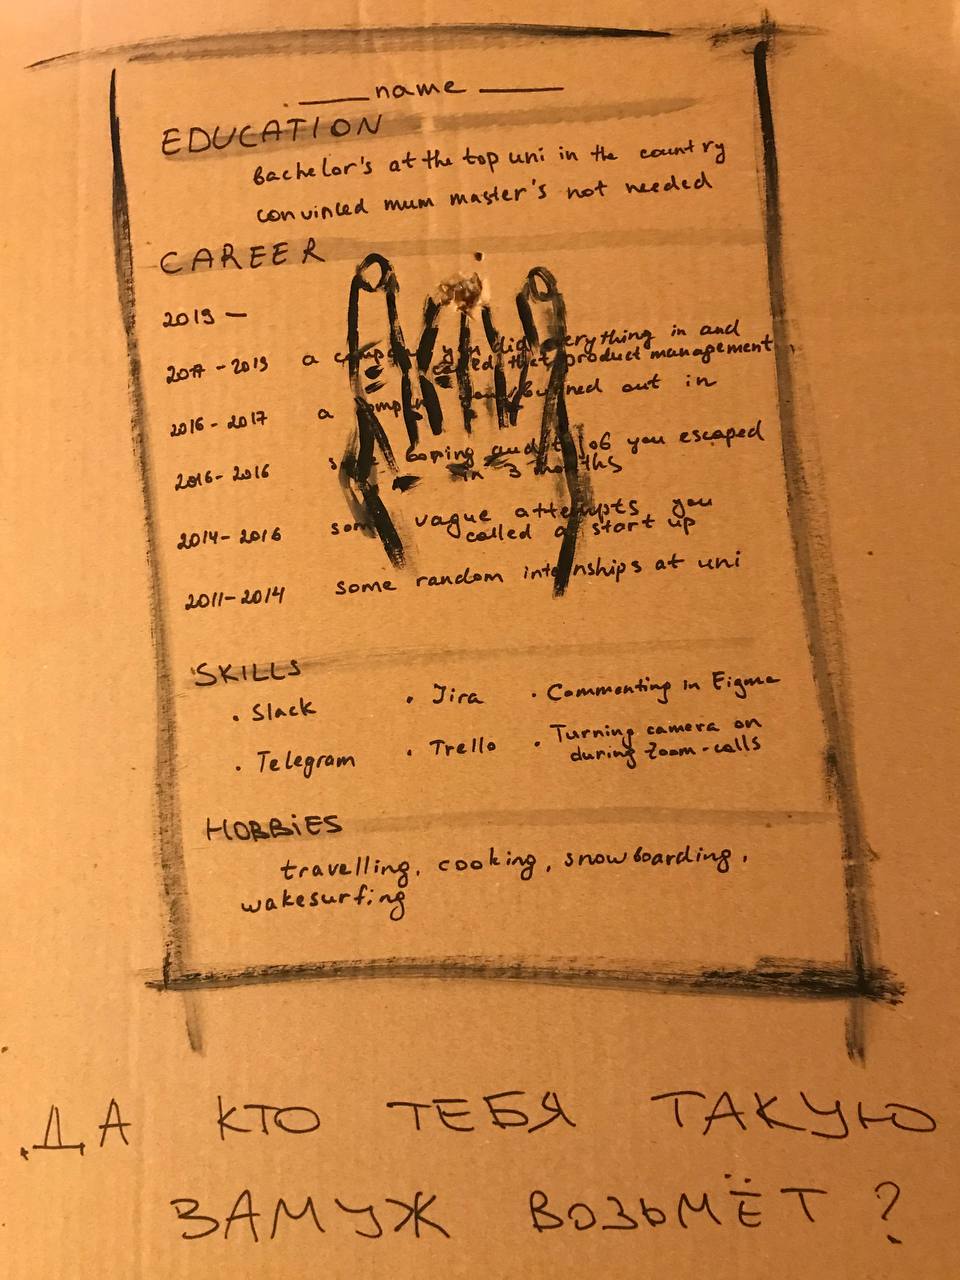 name
EDUCATION
Bachelor's at the top uni in the country
convinced mum master's not needed
CAREER
2019 —
2017 - 2019 a company you did everything in and
called that product management
2016 - 2017 a company you burned out in
2016 - 2016 boring audit job you escaped
in 3 months
2014 - 2016 some vague attempts you
called a start up
2011 - 2014 some random internships at uni
SKILLS
• Slack • Jira • Commenting in Figma
• Telegram • Trello • Turning camera on
during Zoom-calls
HOBBIES
travelling, cooking, snowboarding,
wakesurfing
ДА КТО ТЕБЯ ТАКУЮ
ЗАМУЖ ВОЗЬМЁТ?